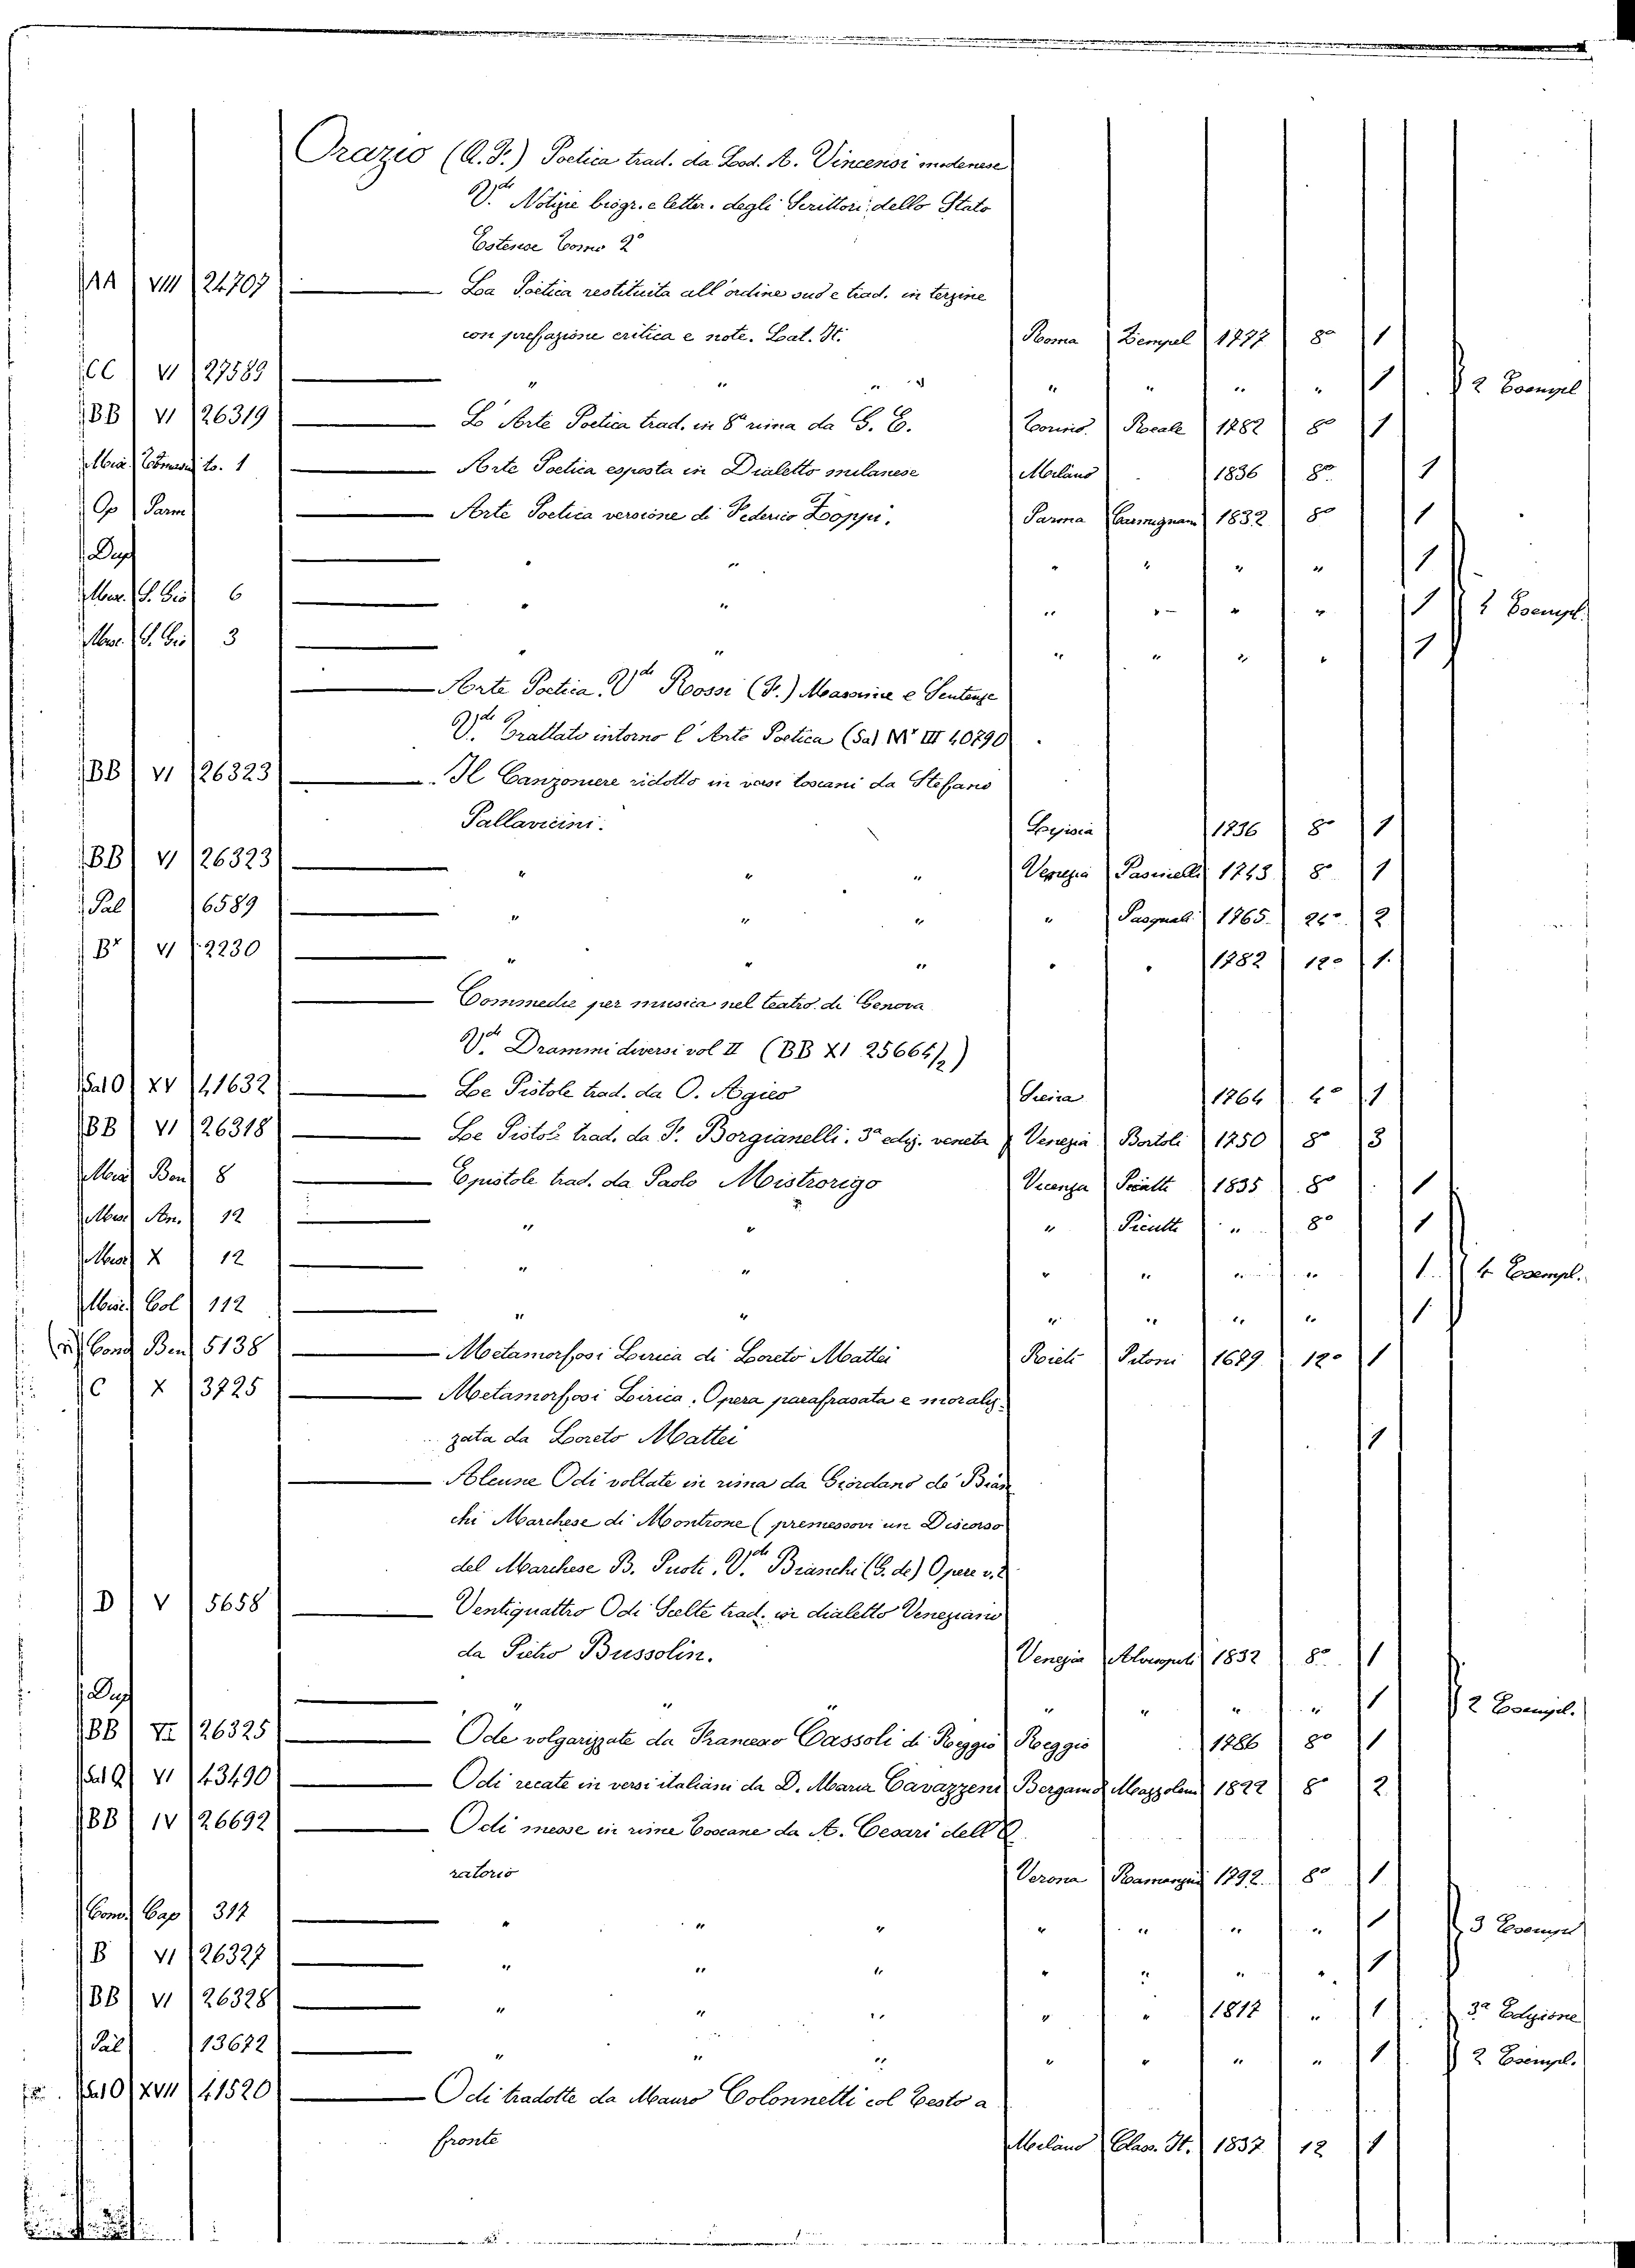 Orazio (Q. F.) Poetica trad. da Lod. A. Vincenzi modenese
V.de Notizie biogr. e letter. degli Scrittori dello Stato
Estense Tomo 2°
AA VIII 24707 — La Poetica restituita all'ordine suo e trad. in terzine
con prefazione critica e note. Lat. It. Roma Zempel 1777 8° 1
CC VI 27589 — " " " " " " " " 1 2 Esempl
BB VI 26319 — L'Arte Poetica trad. in 8ª rima da G. G. Torino Reale 1782 8° 1
Misc. to. 1 — Arte Poetica esposta in Dialetto milanese Milano 1836 8° 1
Op Parm — Arte Poetica versione di Federico Zoppi. Parma Carmignani 1832 8° 1
Dup — " " " " " " 1
Misc. S. Gio 6 — " " " " " " 1 Esempl.
Misc. S. Gio 3 — " " " " " " 1
— Arte Poetica. V.de Rossi (F.) Massime e Sentenze
V.de Trattato intorno l'Arte Poetica (Sal Mr III 40790
BB VI 26323 — Il Canzoniere ridotto in versi toscani da Stefano
Pallavicini. Lipsia 1736 8° 1
BB VI 26323 — " " " Venezia Pasinelli 1743 8° 1
Pal 6589 — " " " " Pasquali 1765 2
Br VI 2230 — " " " " " 1782 12° 1.
— Commedie per musica nel teatro di Genova
V.de Drammi diversi vol II (BB XI 25665/2)
Sal O XV 41632 — Le Pistole trad. da O. 1764 4° 1
BB VI 26318 — Le Pistole trad. da F. Borgianelli. 3ª ediz. veneta Venezia Bortoli 1750 8° 3
Misc Ben 8 — Epistole trad. da Paolo Mistrorigo Vicenza Picutti 1835 8° 1
Misc An. 12 — " " " Picutti " 8° 1
Misc X 12 — " " " " " " 1 4 Esempl.
Misc. Col 112 — " " " " " " 1
Cons Ben 5138 — Metamorfosi Lirica di Loreto Mattei Rieti Pitoni 1679 12° 1
C X 3725 — Metamorfosi Lirica. Opera parafrasata e moraliz-
zata da Loreto Mattei 1
— Alcune Odi voltate in rima da Giordano de' Bian
chi Marchese di Montrone (premessovi un Discorso
del Marchese B. Puoti. V.de Bianchi (G. de) Opere v. 2
D V 5658 — Ventiquattro Odi Scelte trad. in dialetto Veneziano
da Pietro Bussolin. Venezia Alvisopoli 1832 8° 1
Dup — " " " " " " " 1 2 Esempl.
BB VI 26325 — Ode volgarizzate da Francesco Cassoli di Reggio Reggio 1786 8° 1
Sal Q VI 43490 — Odi recate in versi italiani da D. Maria Cavazzeni Bergamo Mazzoleni 1822 8° 2
BB IV 26692 — Odi messe in rime Toscane da A. Cesari dell'O
ratorio Verona Ramanzini 1792. 8° 1
Cons. Cap 317 — " " " " " " " 1 3 Esempl
B VI 26327 — " " " " " " " 1
BB VI 26328 — " " " " " 1817 " 1 3ª Edizione
Pal 13672 — " " " " " " " 1 2 Esempl.
Sal O XVII 41520 — Odi tradotte da Mauro Colonnetti col Testo a
fronte Milano Class. It. 1837 12 1